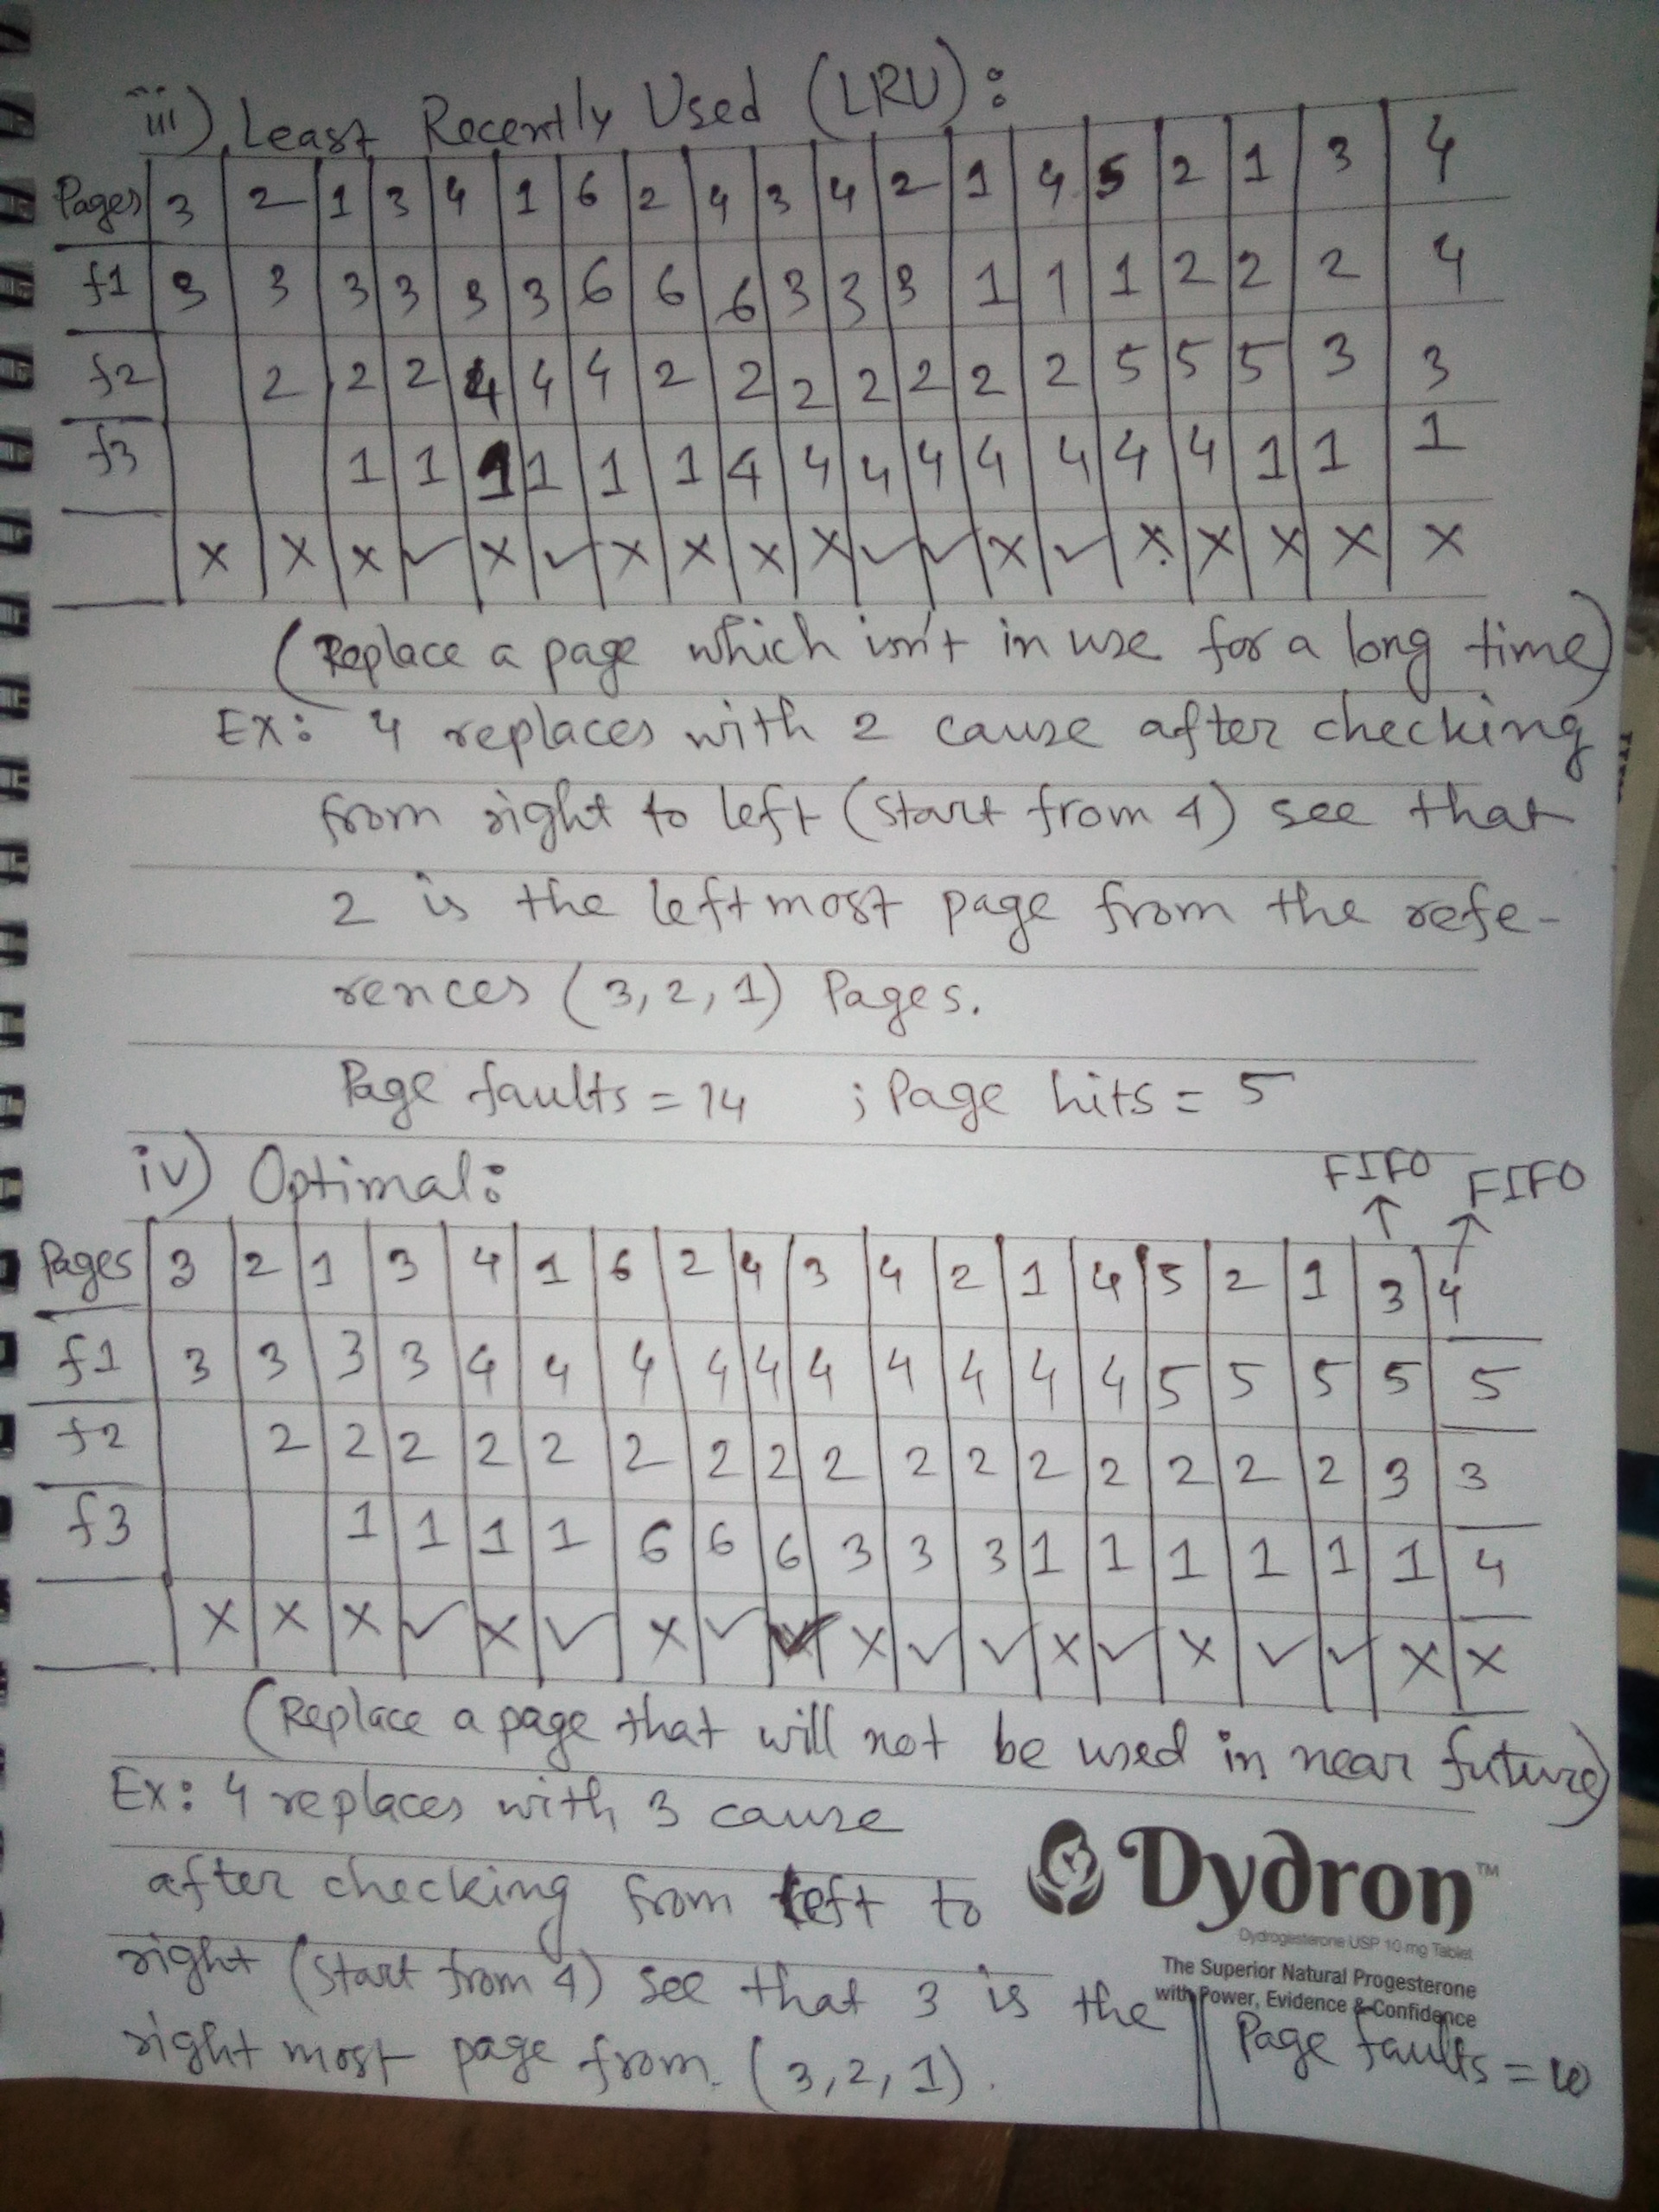 iii) Least Recently Used (LRU):
Pages 3 2 1 3 4 1 6 2 4 3 4 2 1 4 5 2 1 3 4
f1 3 3 3 3 3 3 6 6 6 3 3 3 1 1 1 2 2 2 4
f2 2 2 2 4 4 4 2 2 2 2 2 2 2 5 5 5 3 3
f3 1 1 1 1 1 1 4 4 4 4 4 4 4 4 1 1 1
× × × ✓ × ✓ × × × × ✓ ✓ × ✓ × × × × ×
(Replace a page which isn't in use for a long time)
Ex: 4 replaces with 2 cause after checking
from right to left (start from 4) see that
2 is the leftmost page from the refe-
rences (3, 2, 1) Pages.
Page faults = 14 ; Page hits = 5
iv) Optimal:
FIFO FIFO
↑ ↑
Pages 3 2 1 3 4 1 6 2 4 3 4 2 1 4 5 2 1 3 4
f1 3 3 3 3 4 4 4 4 4 4 4 4 4 4 5 5 5 5 5
f2 2 2 2 2 2 2 2 2 2 2 2 2 2 2 2 2 3 3
f3 1 1 1 1 6 6 6 3 3 3 1 1 1 1 1 1 4
× × × ✓ × ✓ × ✓ ✓ × ✓ ✓ × ✓ × ✓ ✓ × ×
(Replace a page that will not be used in near future)
Ex: 4 replaces with 3 cause
after checking from left to
right (start from 4) see that 3 is the
right most page from (3, 2, 1).
Dydron™
Dydrogesterone USP 10 mg Tablet
The Superior Natural Progesterone
with Power, Evidence & Confidence
Page faults = 10